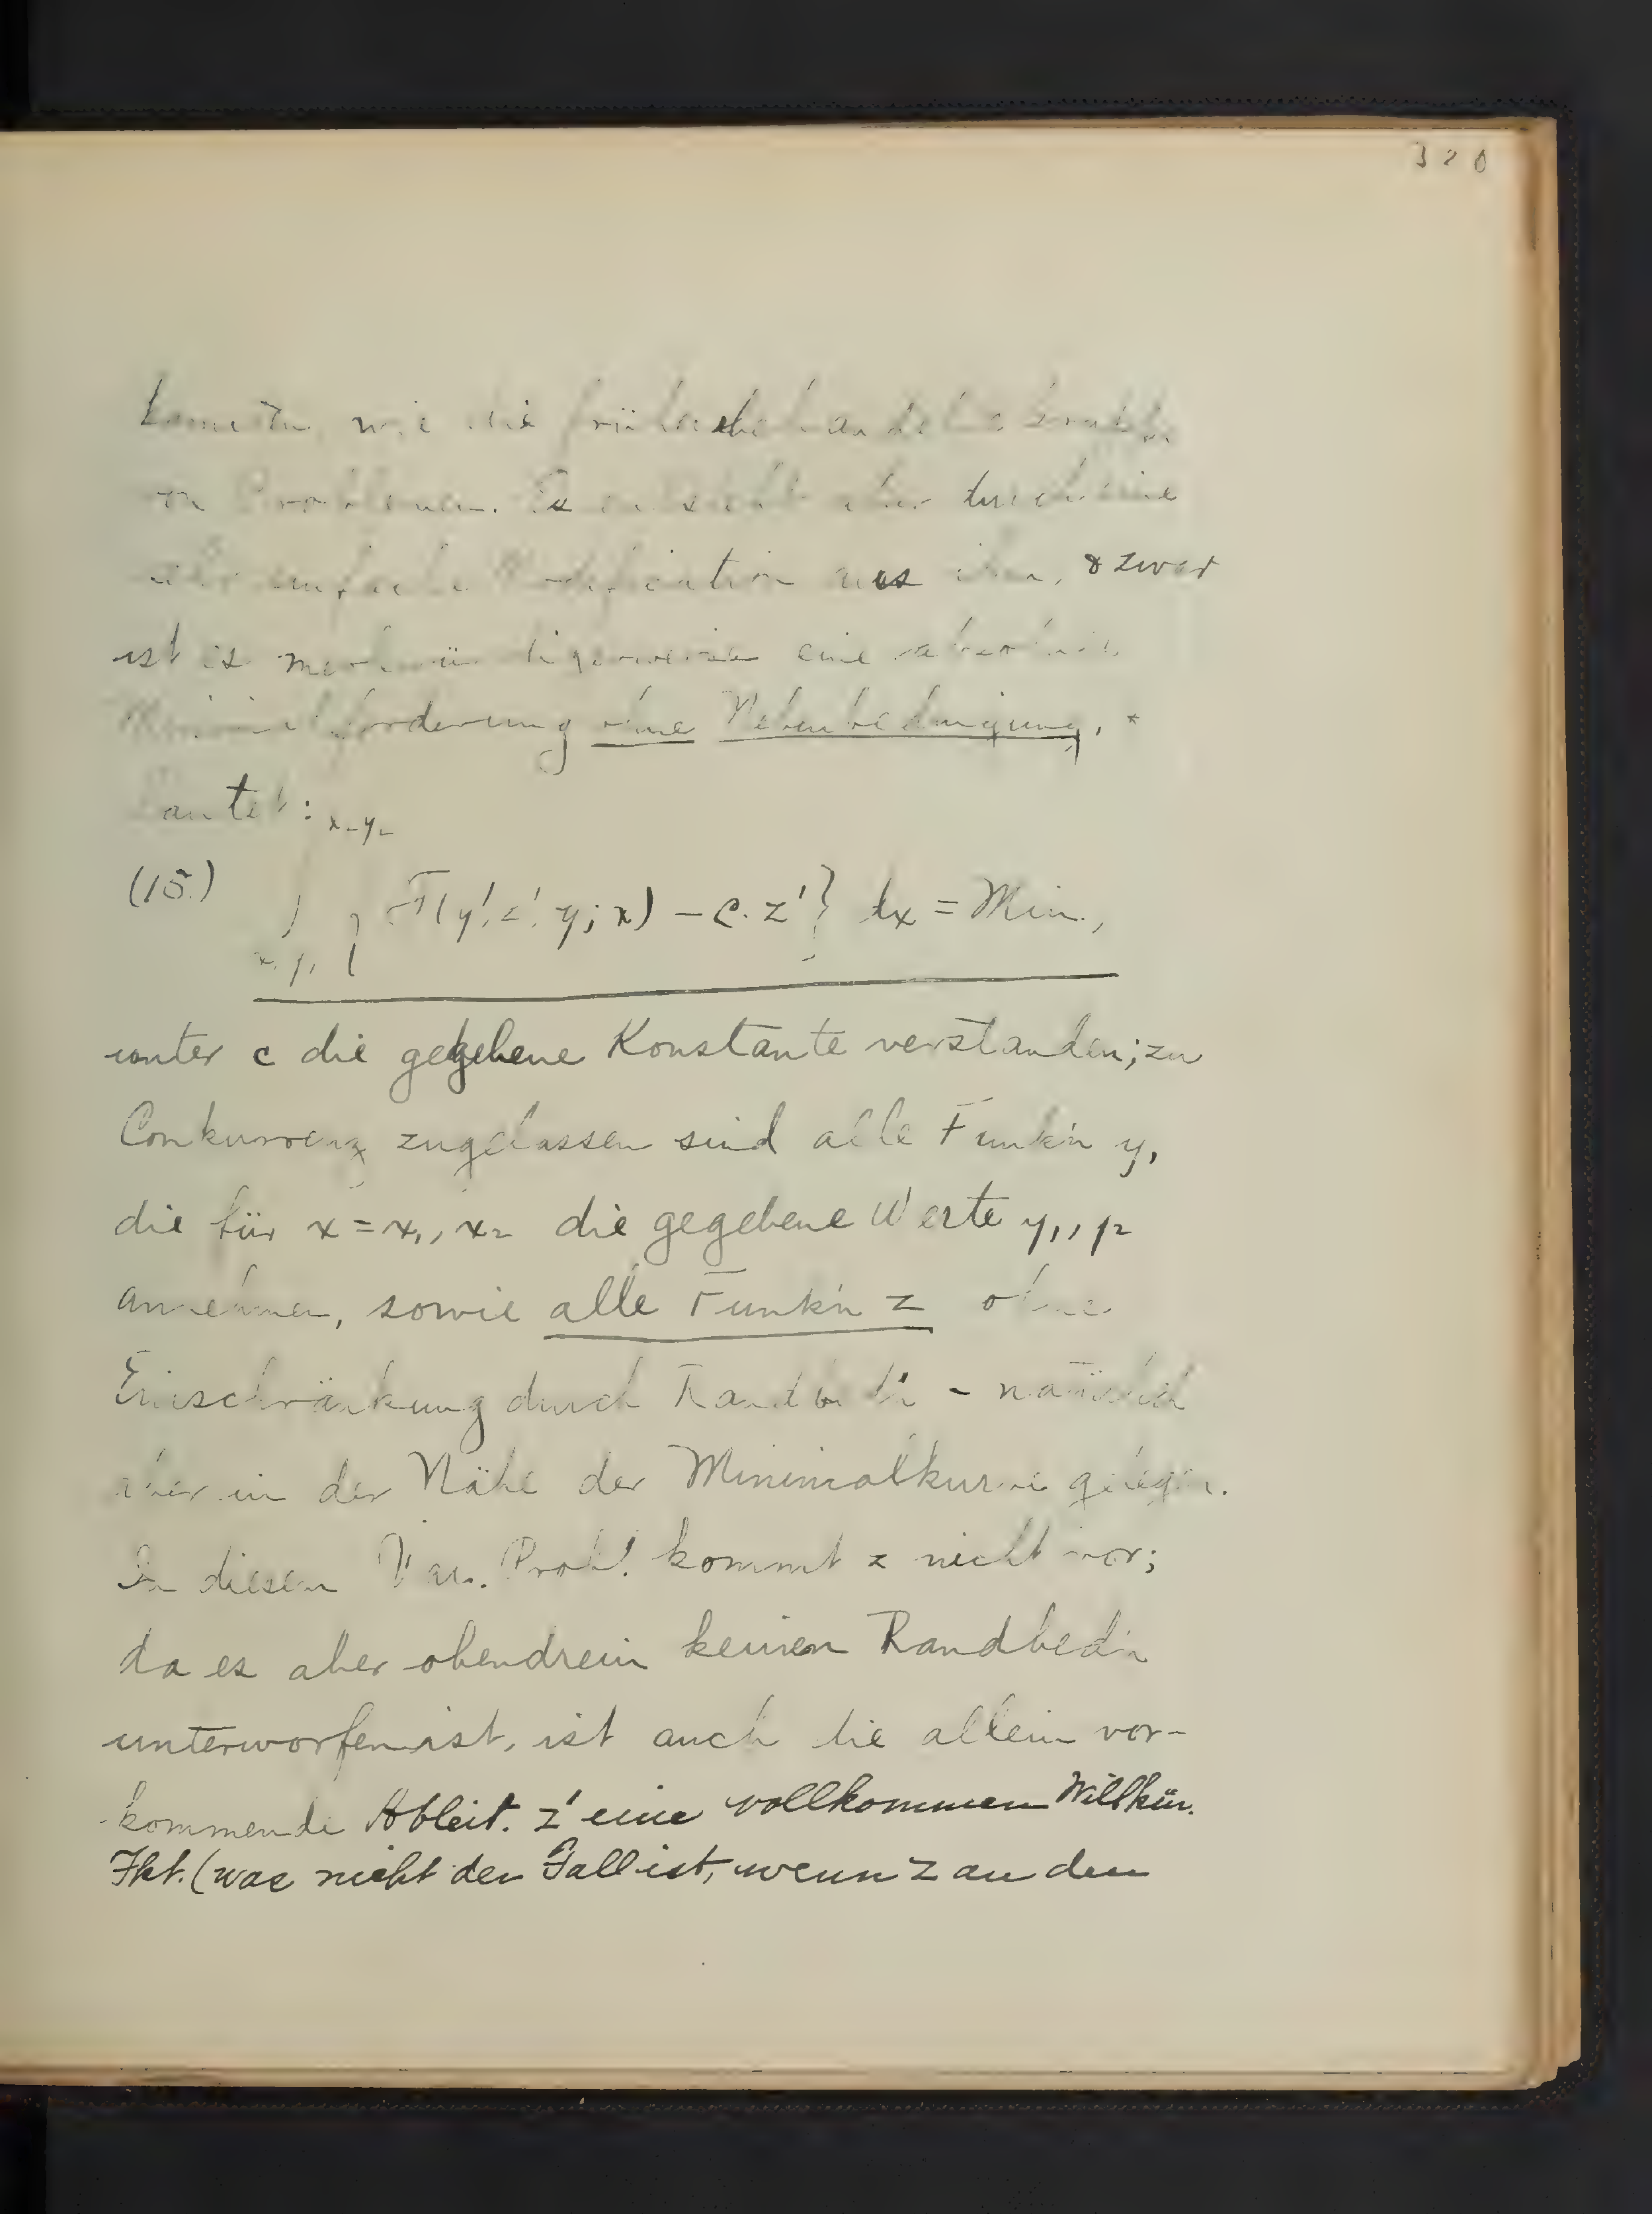 320
wie die früher behandelten
Problemen. Es entsteht aber durch eine
einfache Modification aus ihm, & zwar
ist es merkwürdigerweise eine absolute
Minimalforderung ohne Nebenbedingung, *
Lautet:
(15.) ∫_{x_1 y_1}^{x_2 y_2} { F(y', z', y; x) - c. z' } dx = Min.,
unter c die gegebene Konstante verstanden; zu
Conkurrenz zugelassen sind alle Funk'n y,
die für x = x_1, x_2 die gegebene Werte y_1, y_2
annehmen, sowie alle Funk'n z ohne
Einschränkung durch Randbed'n - natürlich
aber in der Nähe der Minimalkurve gelegen.
In diesem Var. Probl. kommt z nicht vor;
da es aber obendrein keinen Randbed'n
unterworfen ist, ist auch die allein vor-
kommende Ableit. z' eine vollkommen Willkür.
Fkt. (was nicht der Fall ist, wenn z an den